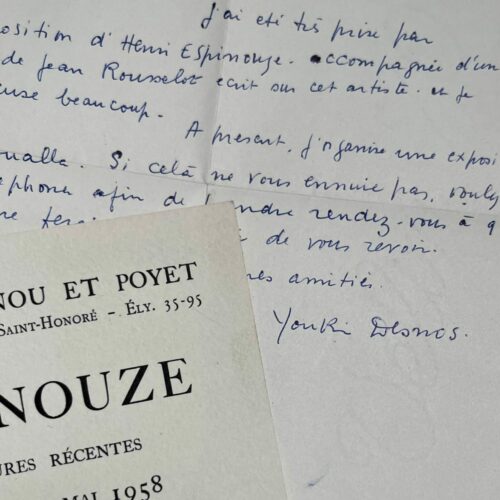 J'ai eté très prise par
position d'Henri Espinouze. accompagnée d'un
de Jean Rousselot ecrit sur cet artiste. et je
beaucoup.
A present, j'organise une exposi
Si celà ne vous ennuie pas, voulez
afin de rendez-vous à
de vous revoir.
amitiés.
Youki Desnos.
NOU ET POYET
SAINT-HONORÉ - ÉLY. 35-95
NOUZE
URES RÉCENTES
MAI 1958